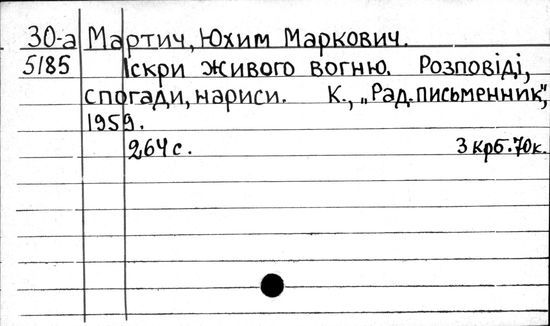 30-а Мартич, Юхим Маркович.
5185 Іскри живого вогню. Розповіді,
спогади, нариси. К., „Рад.письменник",
1959.
264 с. 3 крб. 70к.